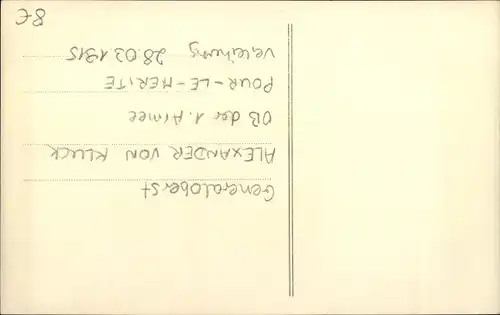 Generaloberst
ALEXANDER VON KLUCK
OB der 1. Armee
POUR-LE-MERITE
Verleihung 28.03.1915
8€